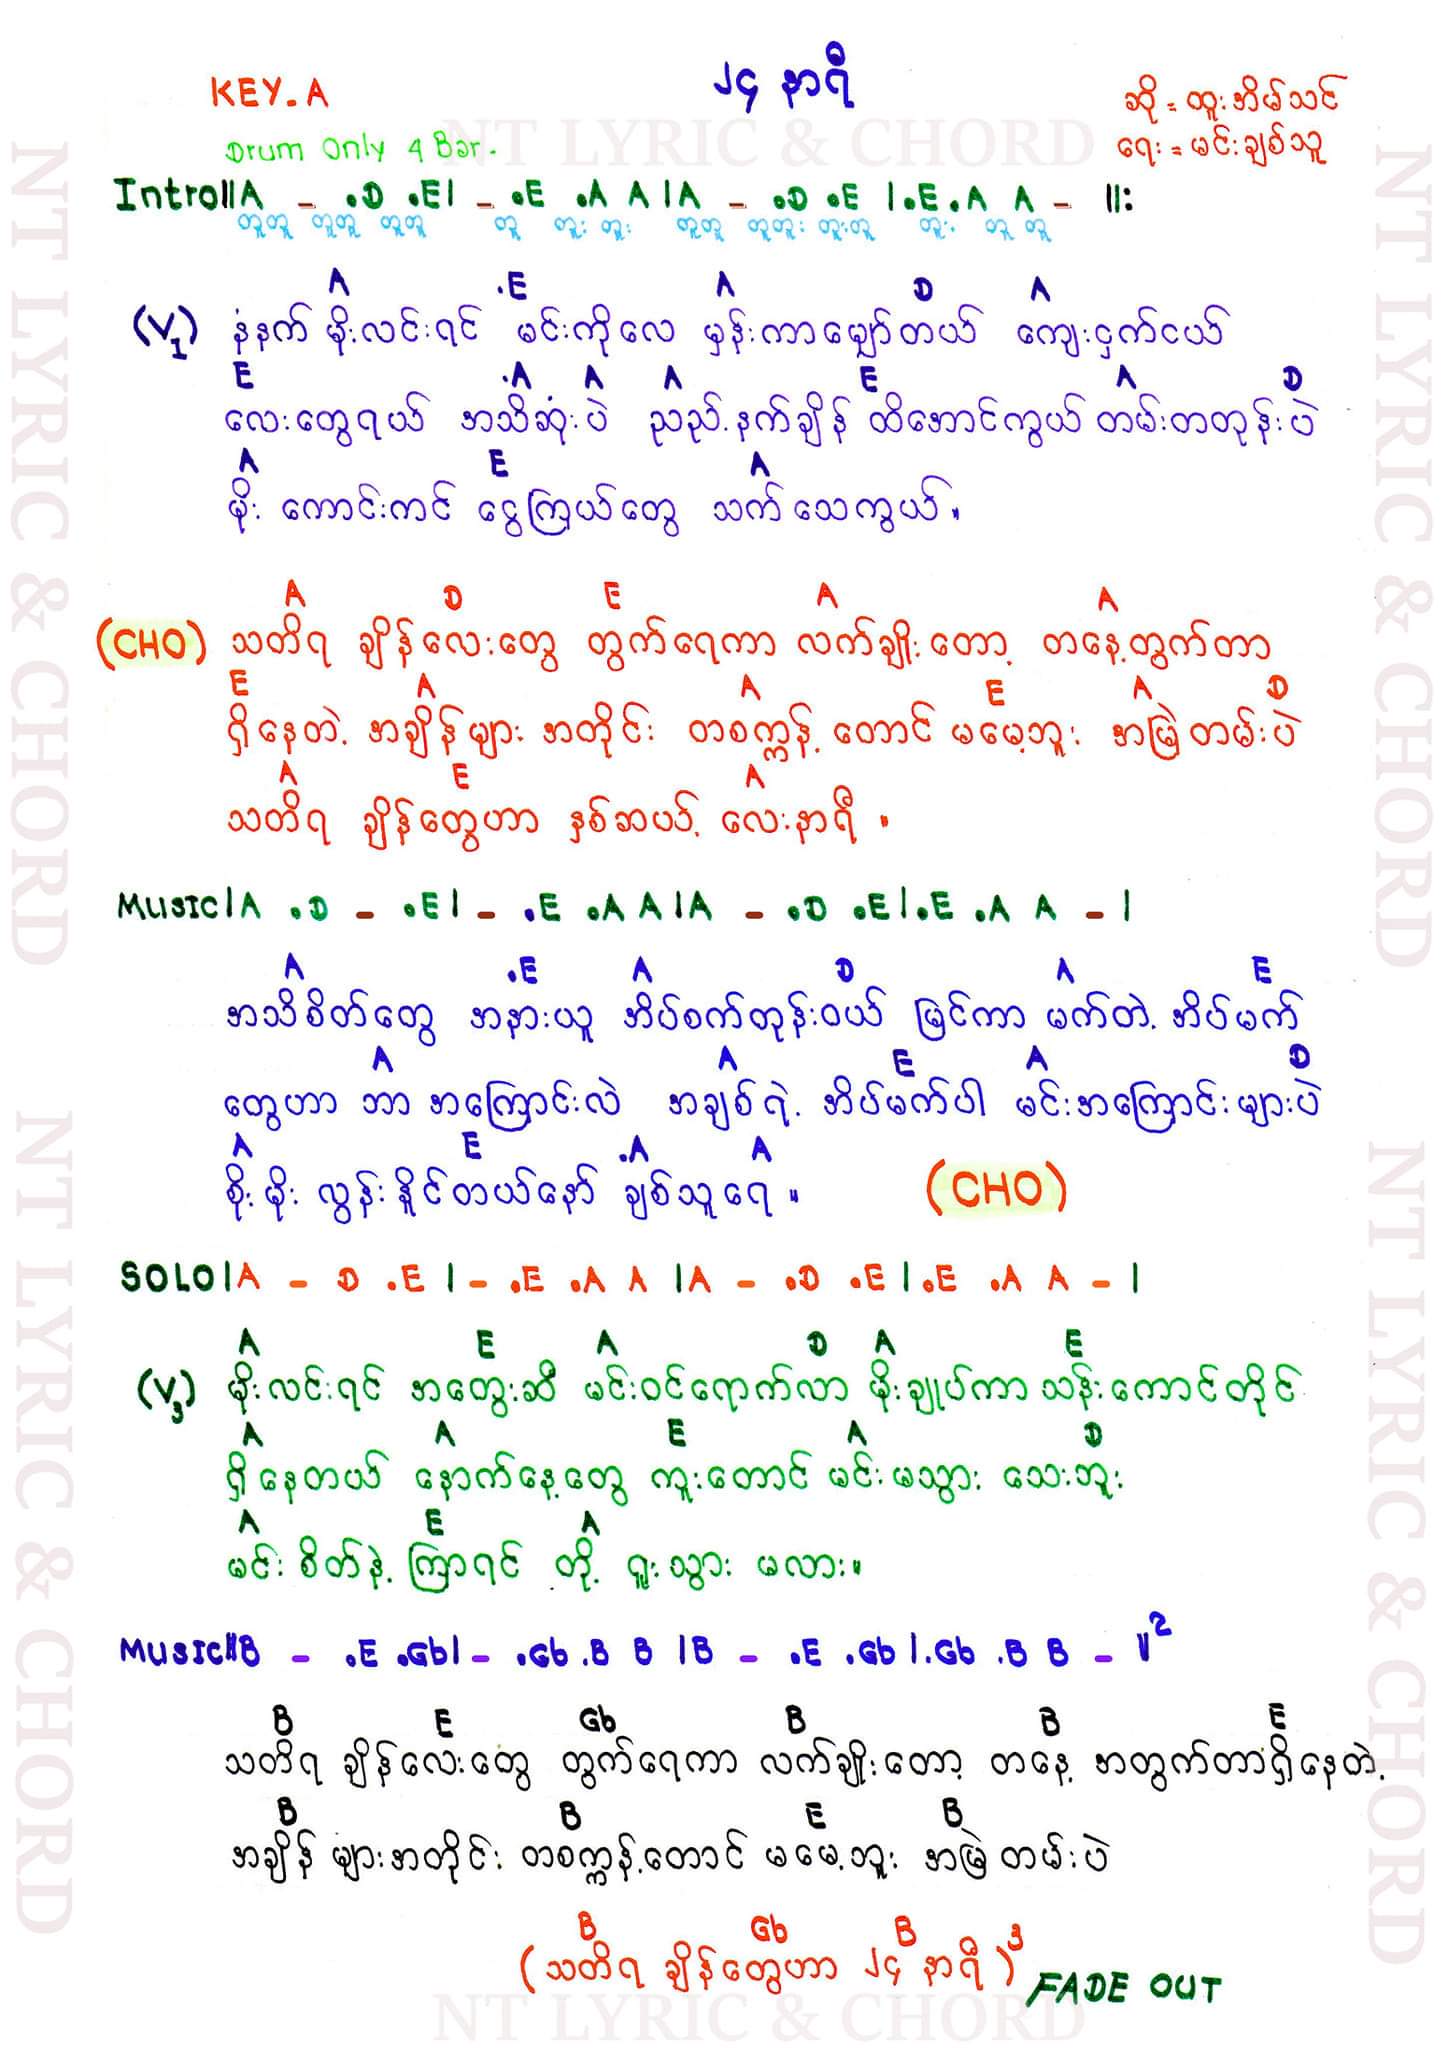 ၂၄ နာရီ
KEY.A
ဆို = ထူးအိမ်သင်
Drum Only 4 Bar.
ရေး = မင်းချစ်သူ
NT LYRIC & CHORD
Intro||A - .D .E| - .E .A A |A - .D .E |.E .A A - ||:
တူတူ တူတူ တူတူ တူ တူး တူး တူတူ တူတူး တူးတူ တူး တူ တူ
A .E A D A
(V1) နံနက် မိုးလင်းရင် မင်းကိုလေ မှန်းကာမျှော်တယ် ကျေးငှက်ငယ်
E .A A A E A D
လေးတွေရယ် အသိဆုံးပဲ ညည့်နက်ချိန် ထိအောင်ကွယ် တမ်းတတုန်းပဲ
A E A
မိုး ကောင်းကင် ငွေကြယ်တွေ သက်သေကွယ်။
A D E A A
(CHO) သတိရ ချိန်လေးတွေ တွက်ရေကာ လက်ချိုးတော့ တနေ့တွက်တာ
E A A E A D
ရှိနေတဲ့ အချိန်များ အတိုင်း တစက္ကန့် တောင် မမေ့ဘူး အမြဲတမ်းပဲ
A E A
သတိရ ချိန်တွေဟာ နှစ်ဆယ့် လေးနာရီ ။
Music|A .D - .E| - .E .A A |A - .D .E|.E .A A - |
A .E A D A E
အသိစိတ်တွေ အနားယူ အိပ်စက်တုန်းဝယ် မြင်ကာ မက်တဲ့ အိပ်မက်
A A E A D
တွေဟာ ဘာ အကြောင်းလဲ အချစ်ရဲ့ အိပ်မက်ပါ မင်းအကြောင်းများပဲ
A E .A A
စိုးမိုး လွှမ်းနိုင်တယ်နော် ချစ်သူရေ ။ (CHO)
SOLO|A - D .E |- .E .A A |A - .D .E |.E .A A - |
A E A D A E
(V3) မိုးလင်းရင် အတွေးဆီ မင်းဝင်ရောက်လာ မိုးချုပ်ကာ သန်းကောင်တိုင်
A A E A D
ရှိနေတယ် နောက်နေ့တွေ ကူးတောင် မင်းမသွား သေးဘူး
A E A
မင်း စိတ်နဲ့ ကြာရင် တို့ ရူးသွား မလား။
Music||B - .E .Gb| - .Gb .B B |B - .E .Gb |.Gb .B B - ||2
B E Gb B B E
သတိရ ချိန်လေးတွေ တွက်ရေကာ လက်ချိုးတော့ တနေ့ အတွက်တာရှိနေတဲ့
B B E B
အချိန် များအတိုင်း တစက္ကန့်တောင် မမေ့ဘူး အမြဲတမ်းပဲ
B Gb B
(သတိရ ချိန်တွေဟာ ၂၄ နာရီ )3
FADE OUT
NT LYRIC & CHORD
NT LYRIC & CHORD
NT LYRIC & CHORD
NT LYRIC & CHORD
NT LYRIC & CHORD